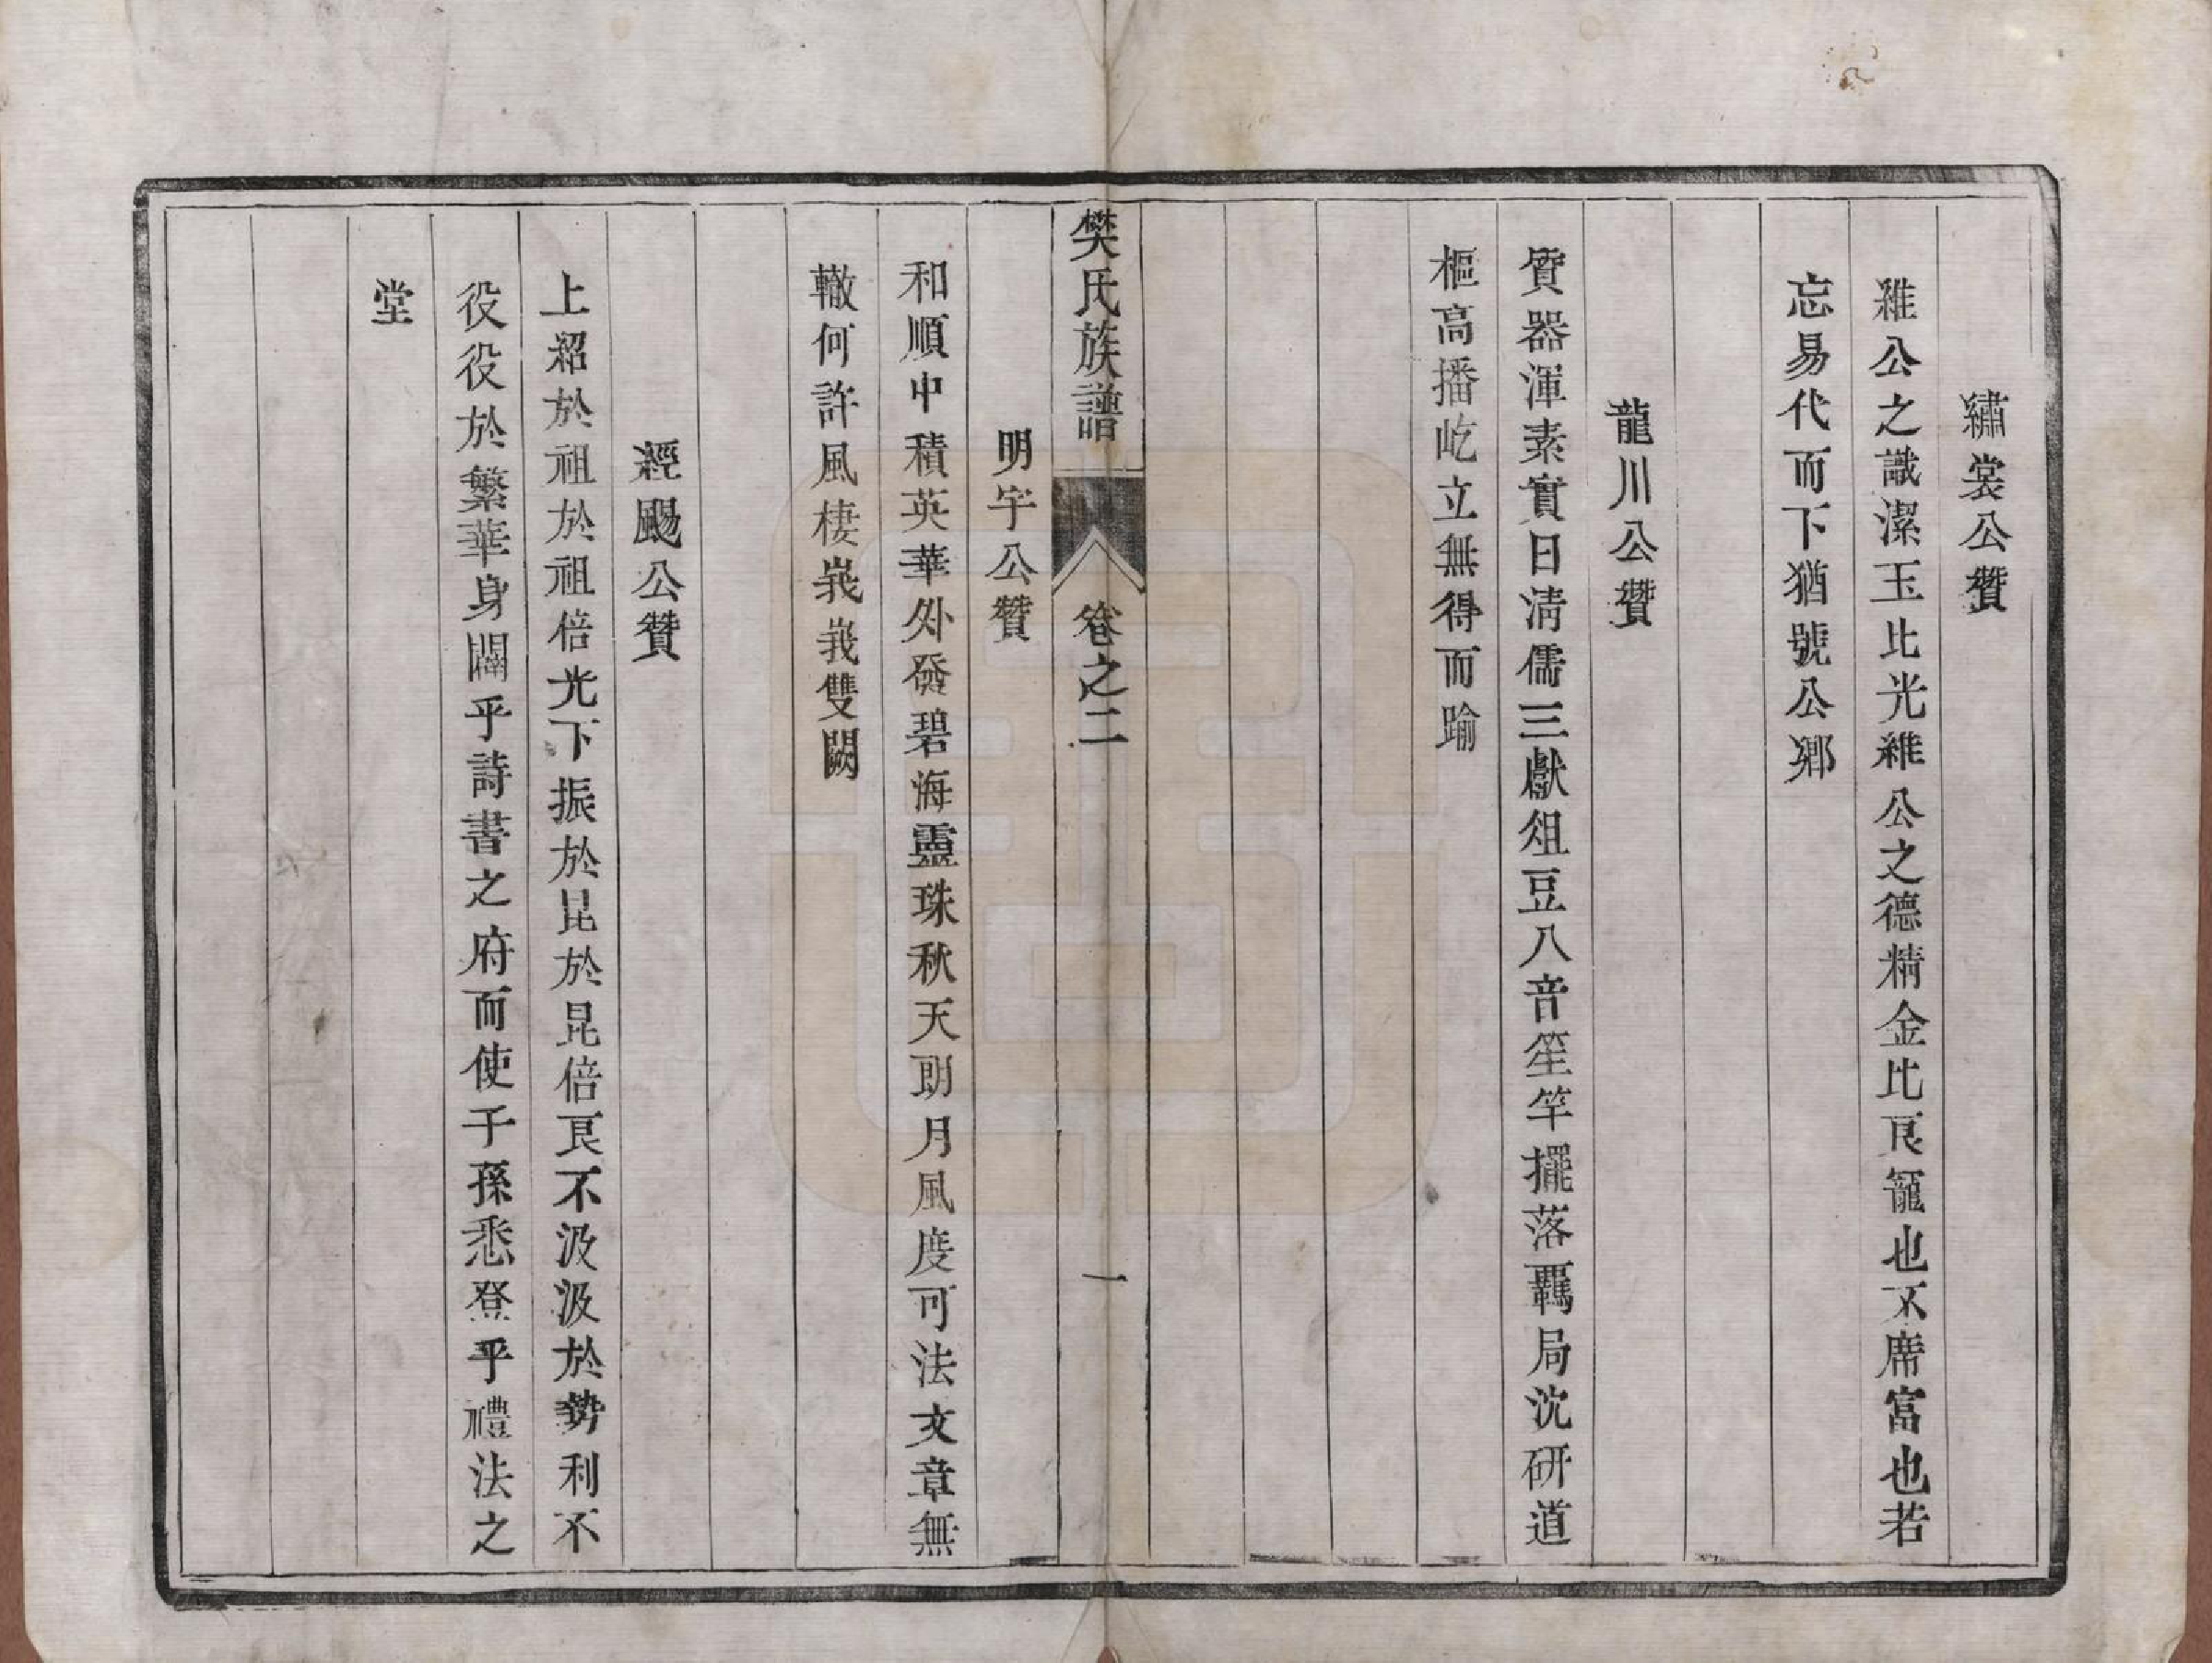 繡裳公贊
維公之識潔玉比光維公之德精金比良寵也不席富也若
忘易代而下猶號公鄉
龍川公贊
質器渾素實曰清儒三獻俎豆八音笙竽擺落羈局沈研道
樞高播屹立無得而踰
樊氏族譜 卷之二 一
明宇公贊
和順中積英華外發碧海靈珠秋天朗月風度可法文章無
轍何許風棲峩峩雙闕
經颺公贊
上紹於祖於祖倍光下振於昆於昆倍良不汲汲於勢利不
役役於繁華身闢乎詩書之府而使子孫悉登乎禮法之
堂